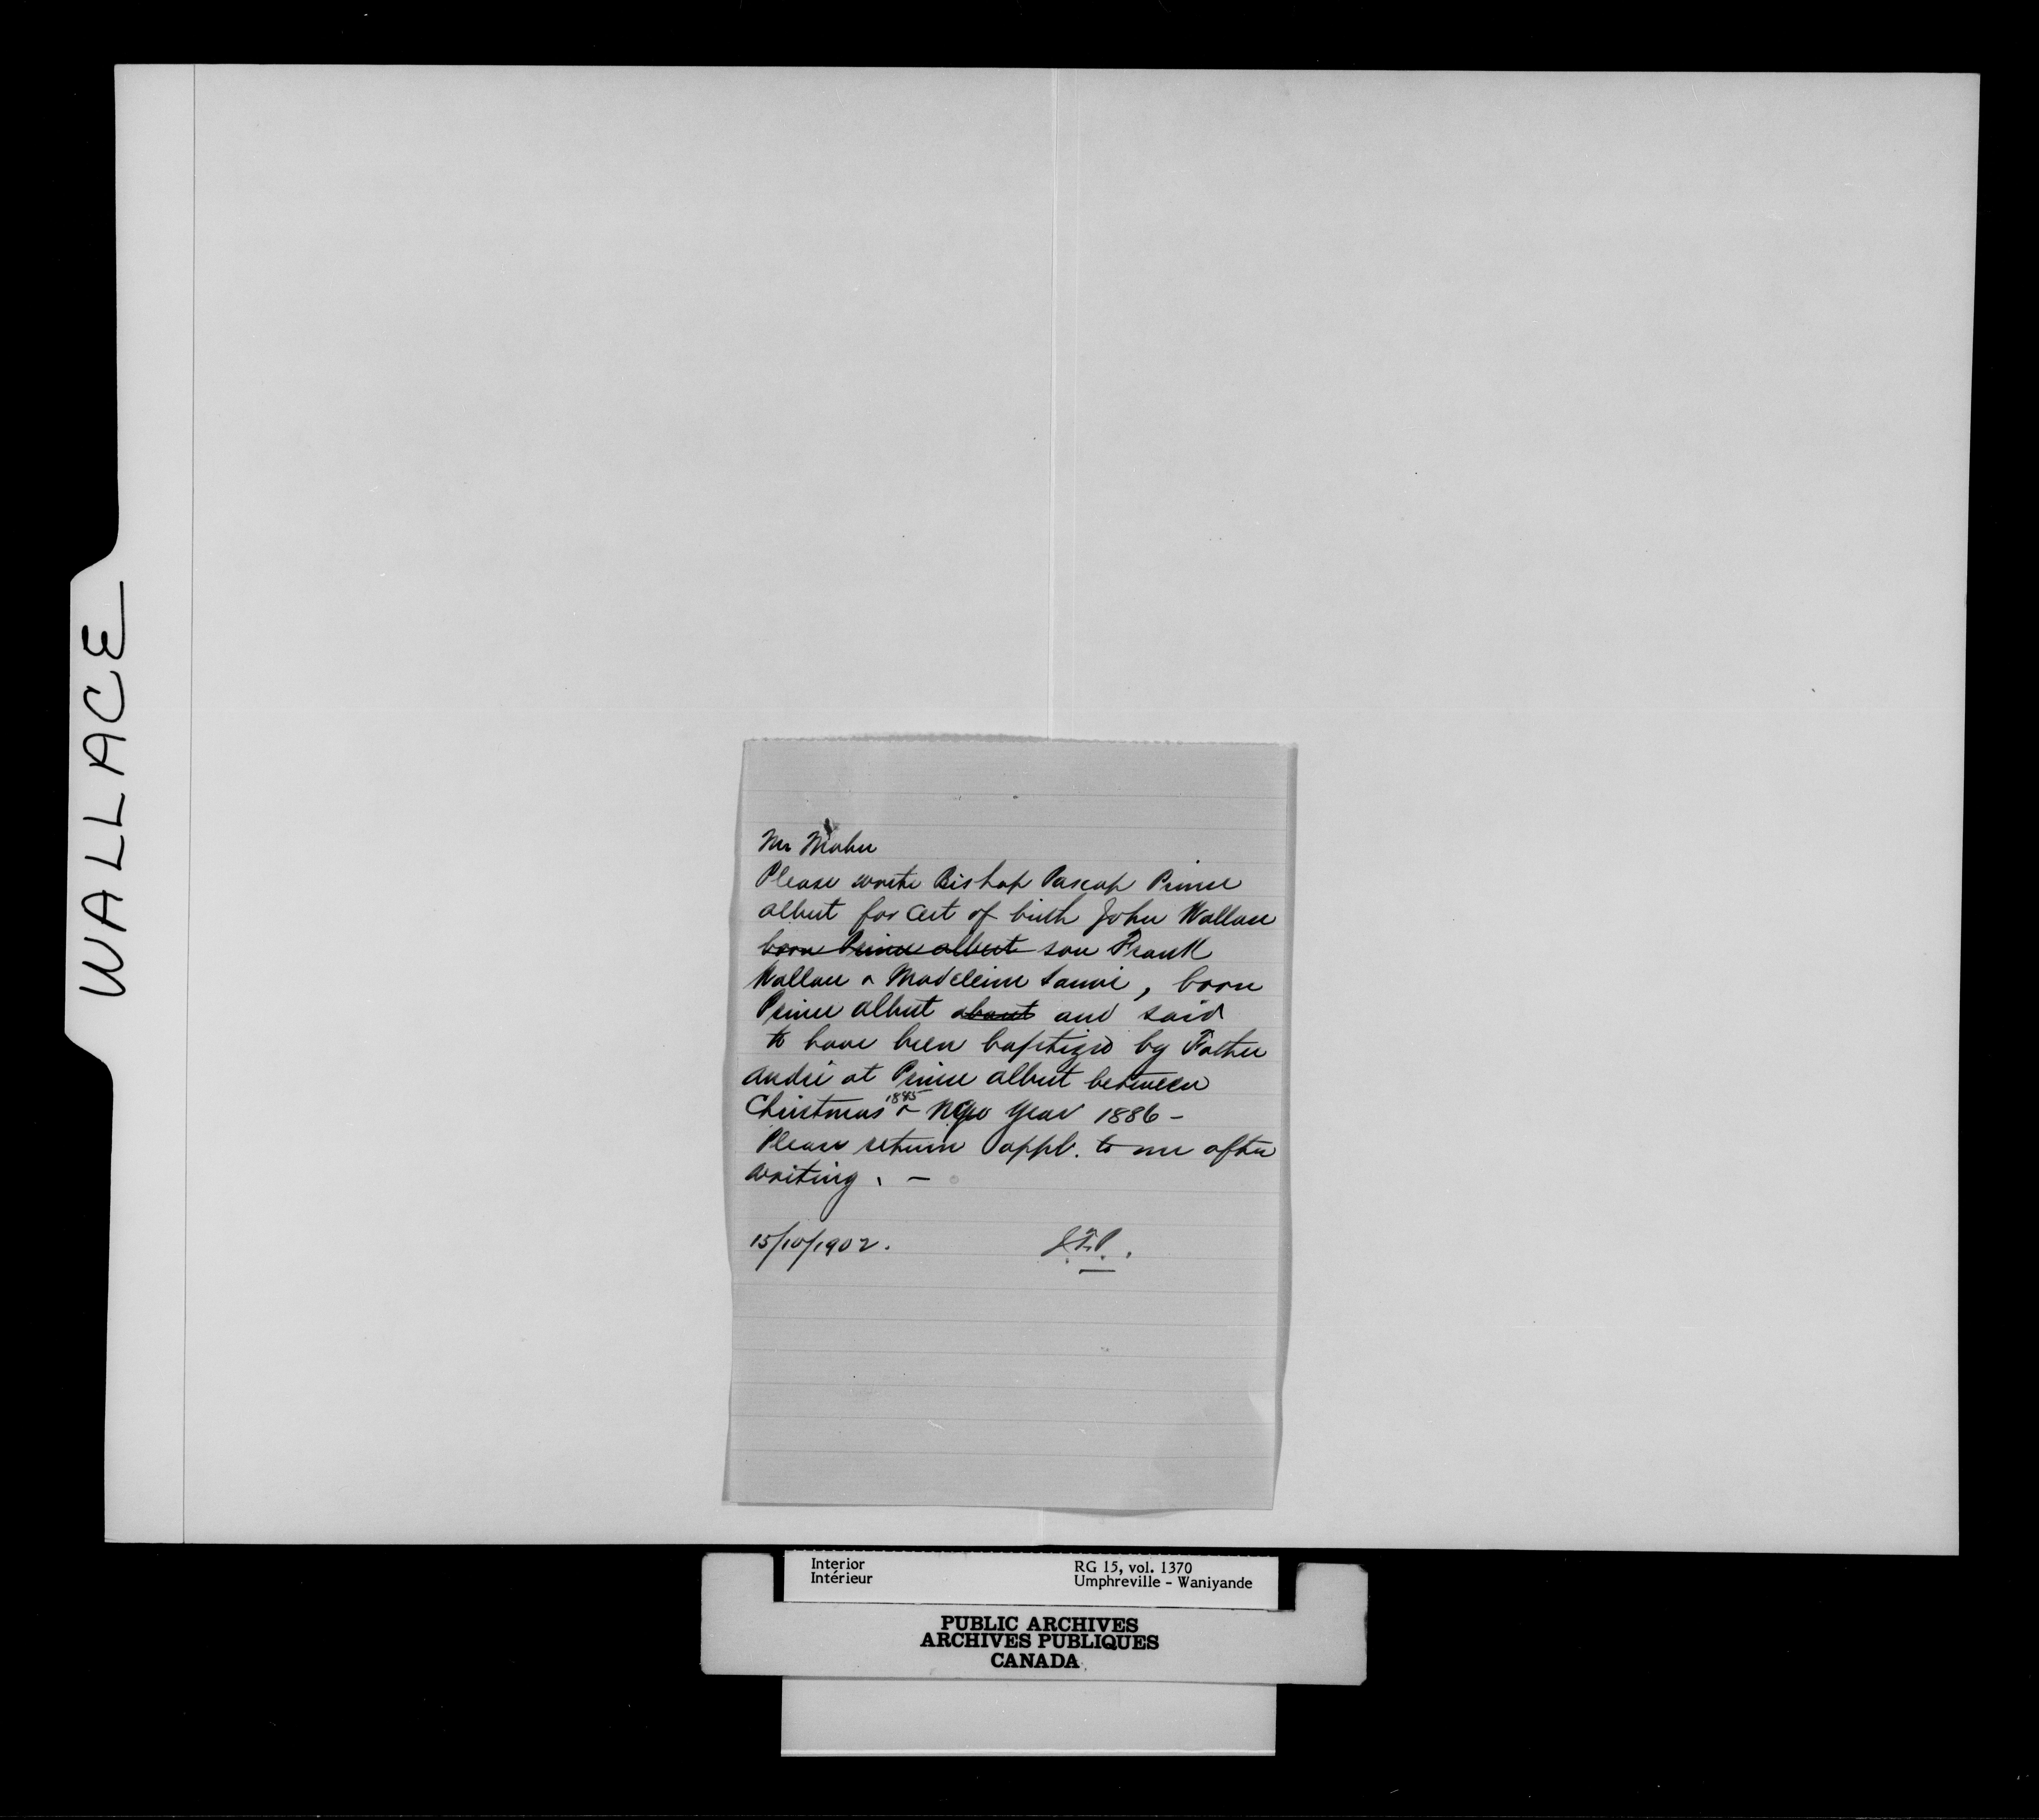 WALLACE
Mr Maher
Please write Bishop Pascal Prince
Albert for cert of birth John Wallace
born Prince Albert son Frank
Wallace & Madeleine, born
Prince Albert about and said
to have been baptized by Father
André at Prince Albert between
Christmas 1885 & New Year 1886 -
Please return appl. to me after
writing. -
15/10/1902.
Interior
Intérieur
RG 15, vol. 1370
Umphreville - Waniyande
PUBLIC ARCHIVES
ARCHIVES PUBLIQUES
CANADA